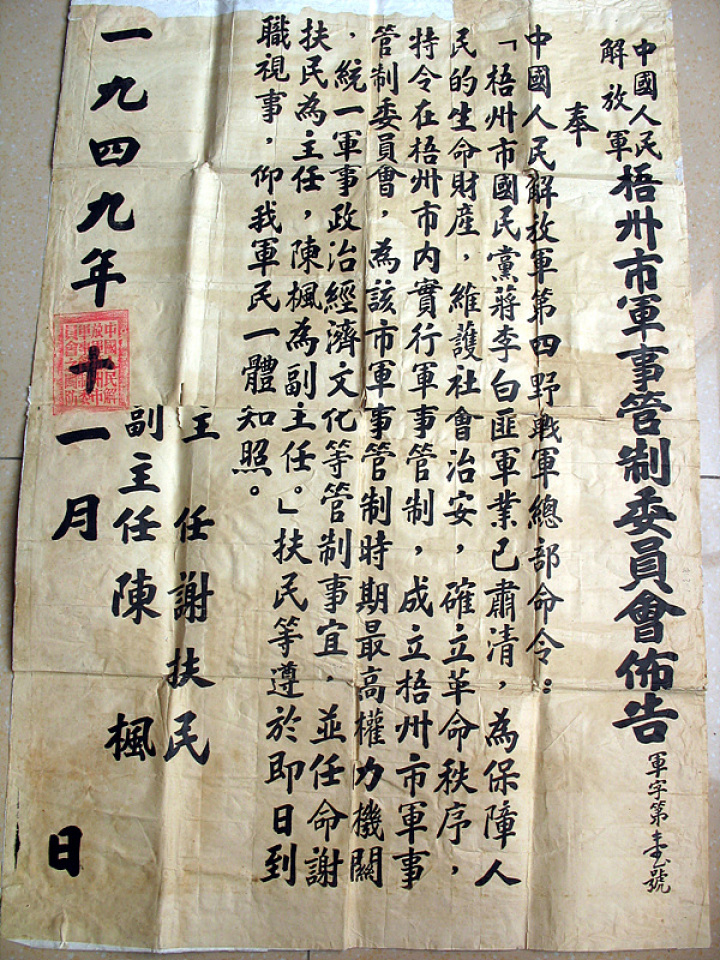 中國人民
解放軍
梧州市軍事管制委員會佈告
軍字第壹號
奉
中國人民解放軍第四野戰軍總部命令：
「梧州市國民黨蔣李白匪軍業已肅清，為保障人
民的生命財產，維護社會治安，確立革命秩序，
特令在梧州市內實行軍事管制，成立梧州市軍事
管制委員會，為該市軍事管制時期最高權力機關
，統一軍事政治經濟文化等管制事宜，並任命謝
扶民為主任，陳楓為副主任。」扶民等遵於即日到
職視事，仰我軍民一體知照。
主任謝扶民
副主任陳楓
一九四九年十一月日